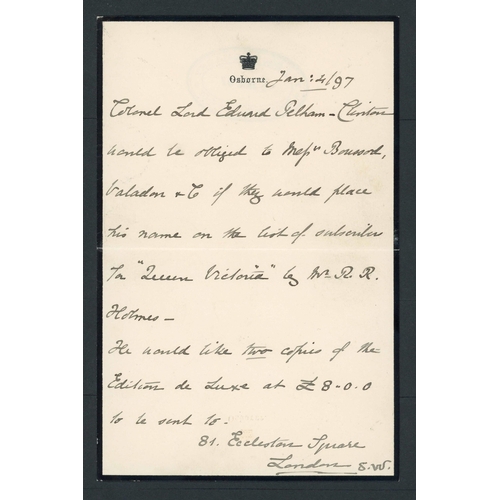 Osborne. Jan: 4/97
Colonel Lord Edward Pelham-Clinton
would be obliged to Messrs Boussod,
Valadon & Co if they would place
his name on the list of subscribers
for "Queen Victoria" by Mr. R. R.
Holmes —
He would like two copies of the
Edition de Luxe at £8-0.0
to be sent to -
81. Eccleston Square
London S.W.